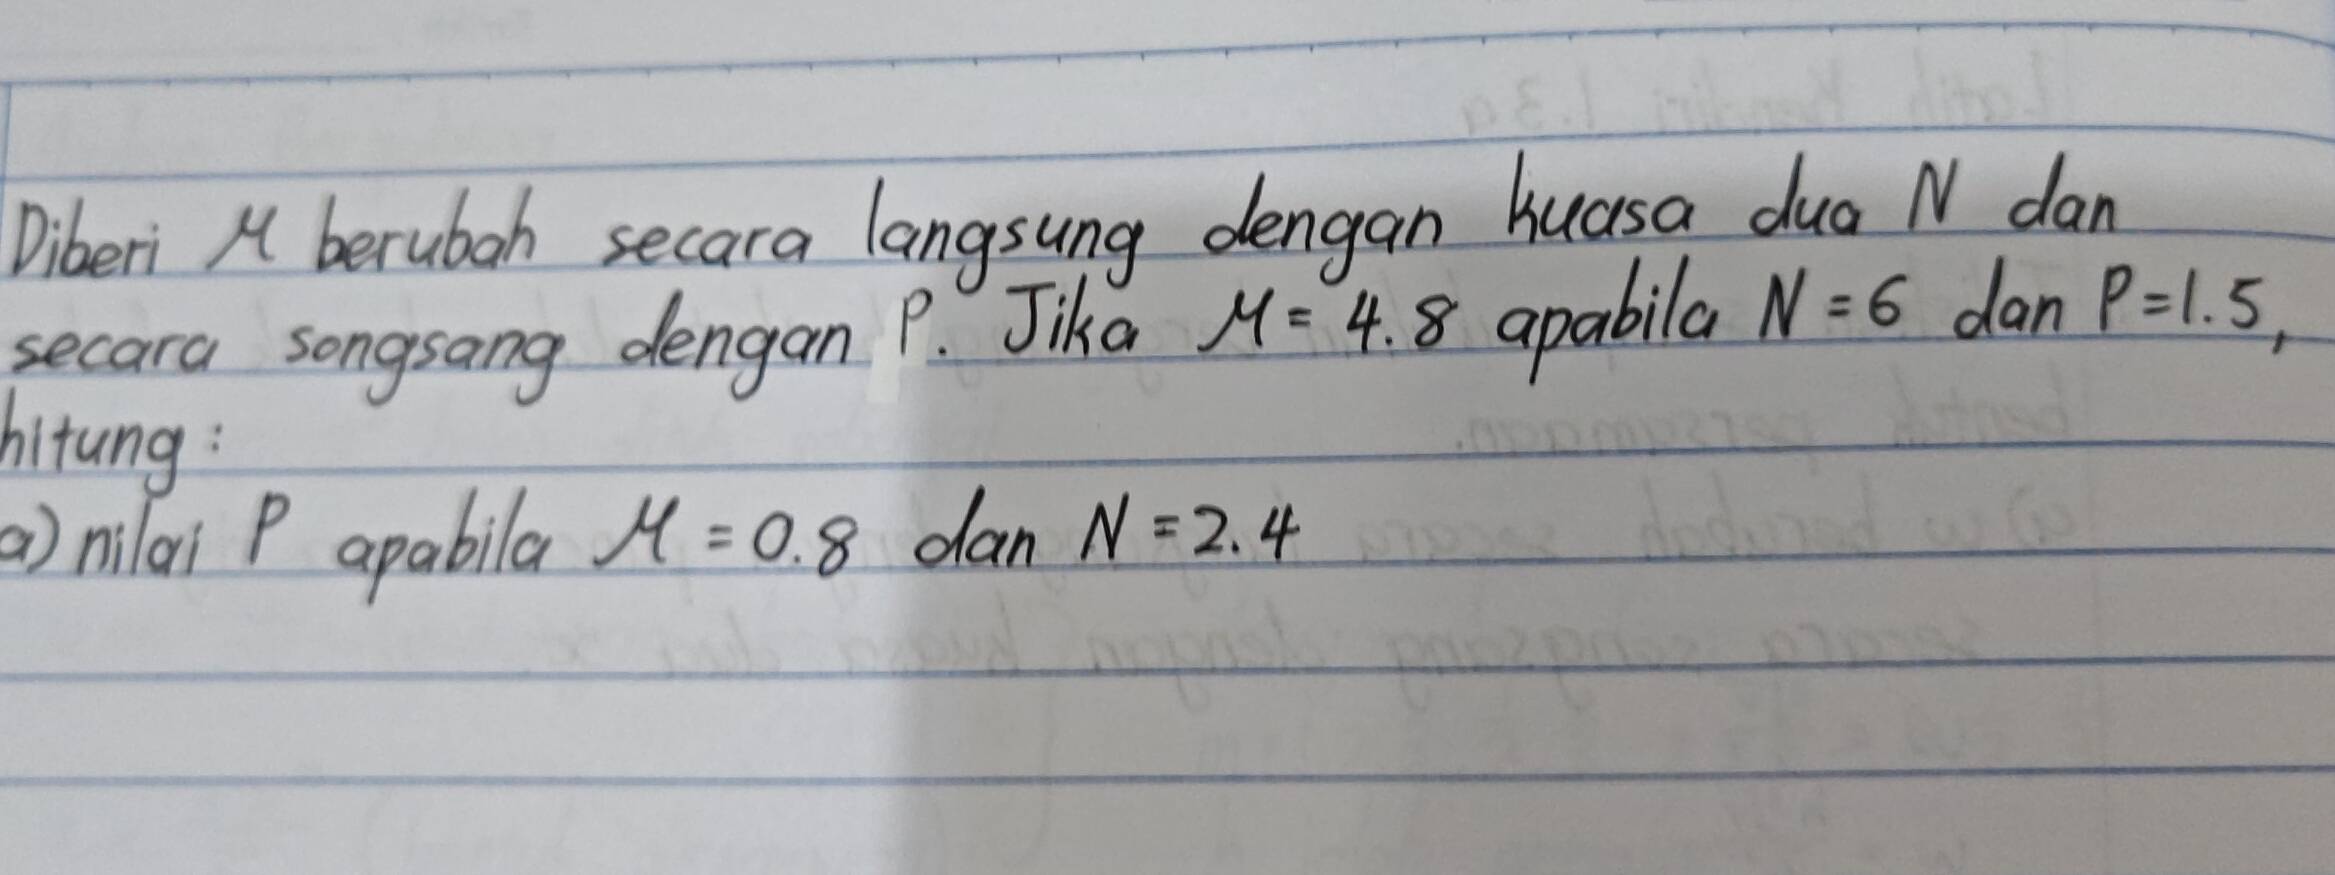 Diberi M berubah secara langsung dengan kuasa dua N dan
secara songsang dengan P. Jika M = 4.8 apabila N = 6 dan P = 1.5,
hitung :
a) nilai P apabila M = 0.8 dan N = 2.4